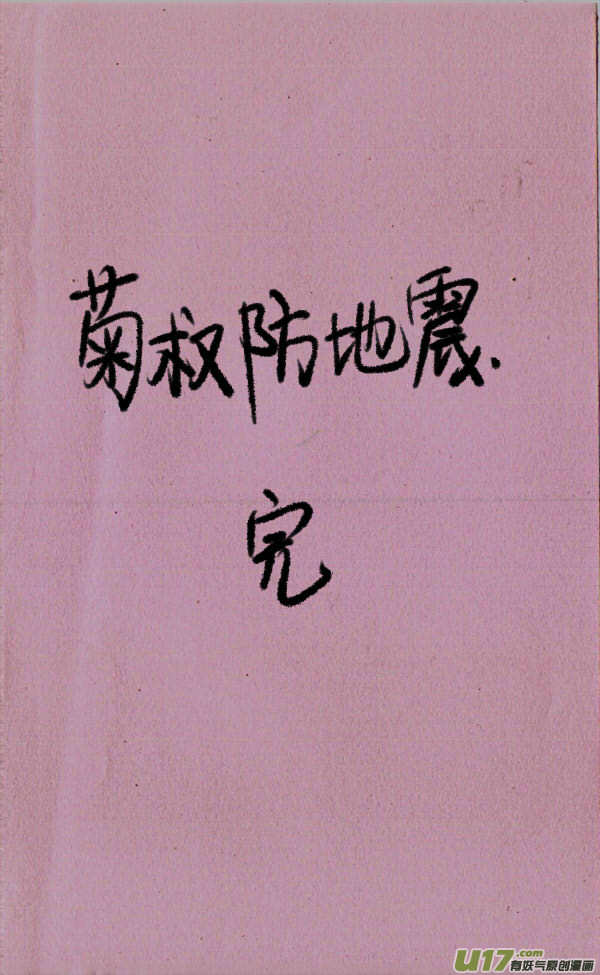 菊叔防地震.
完
U17.com
有妖气原创漫画